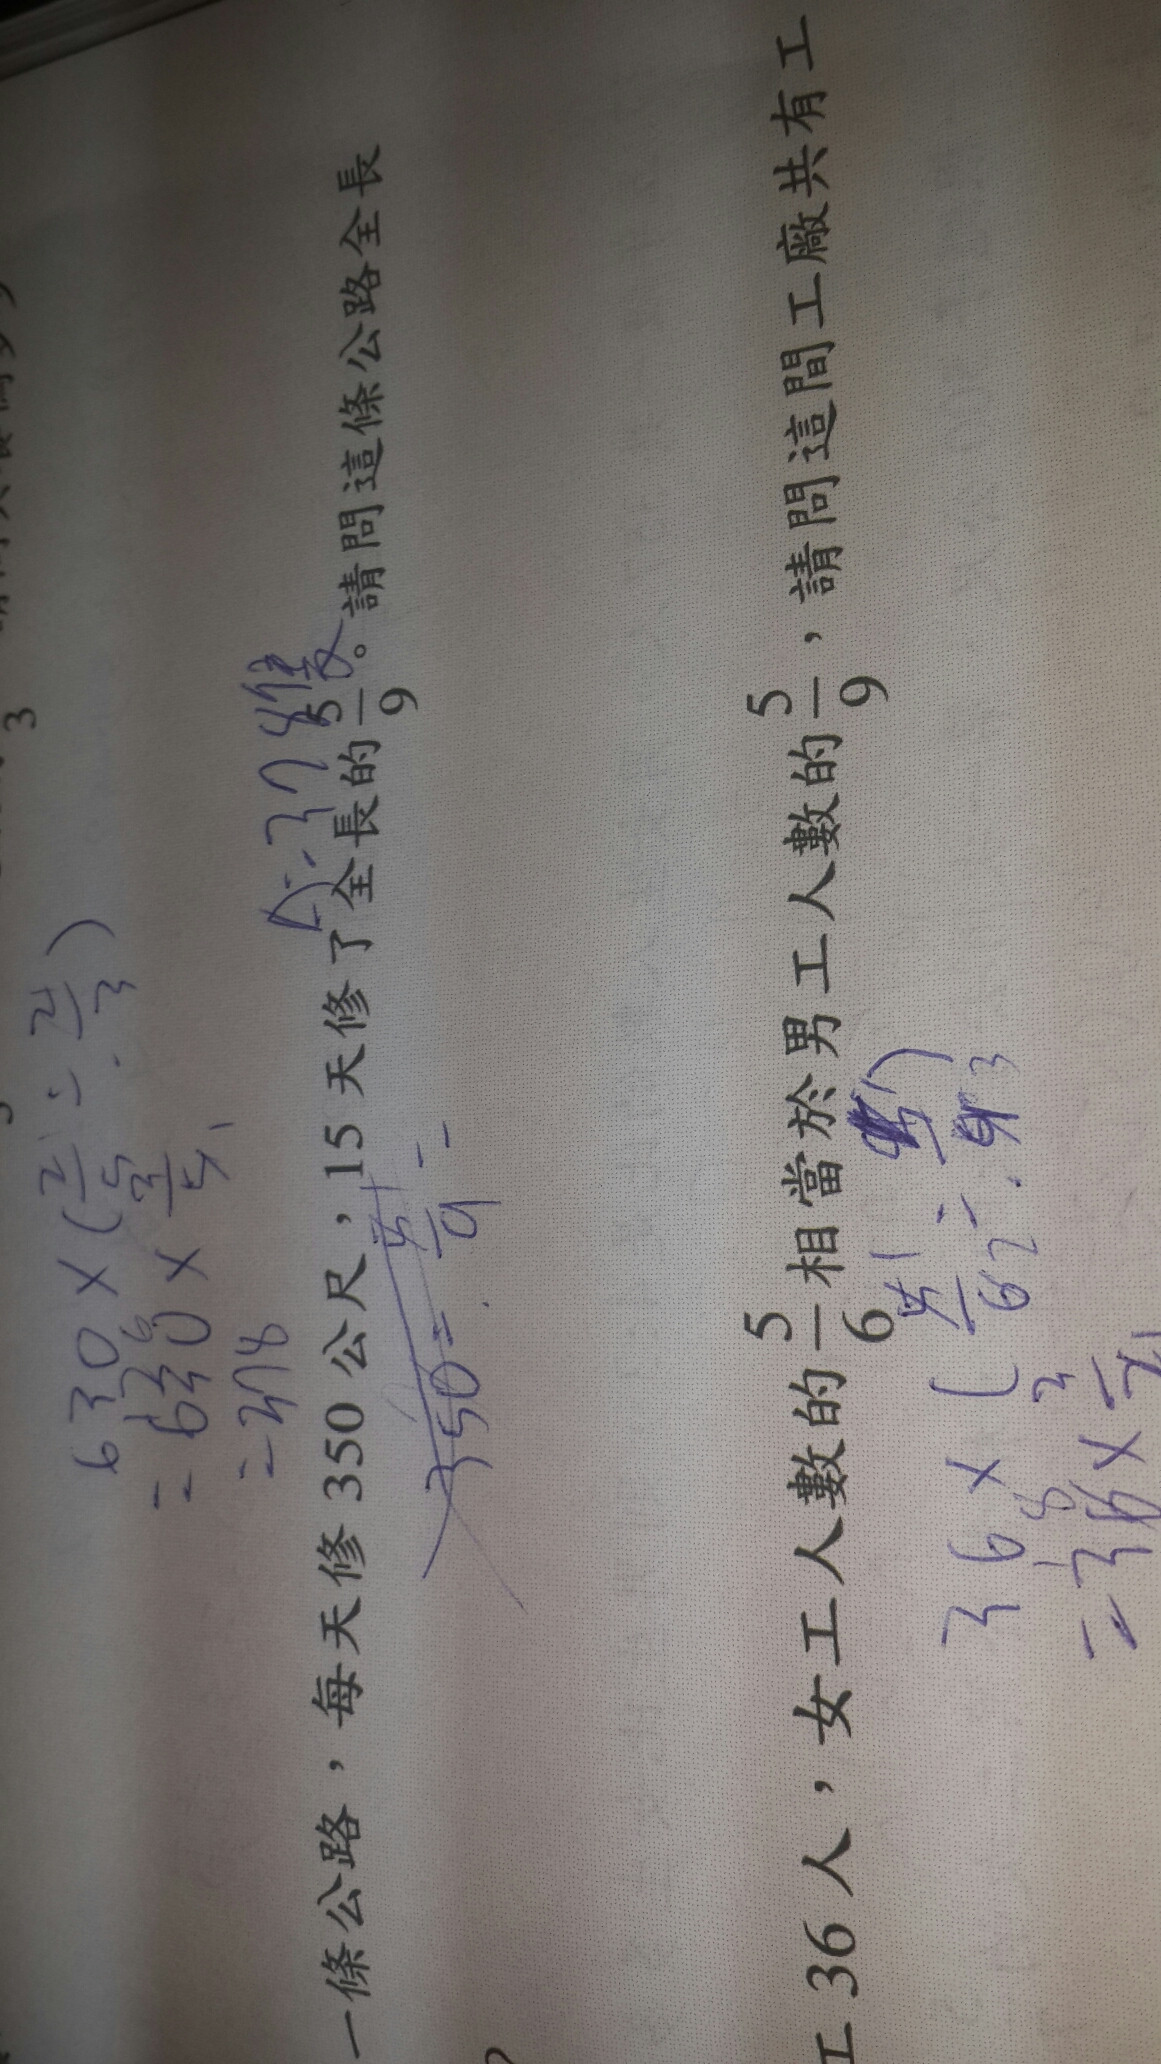 630×(2/5÷2/3)
=630×3/5
=378
A:378雙
一條公路，每天修 350 公尺，15 天修了全長的 5/9。請問這條公路全長
350÷5/9=
工 36 人，女工人數的 5/6 相當於男工人數的 5/9，請問這間工廠共有工
36×(5/6÷5/9)
=36×3/2